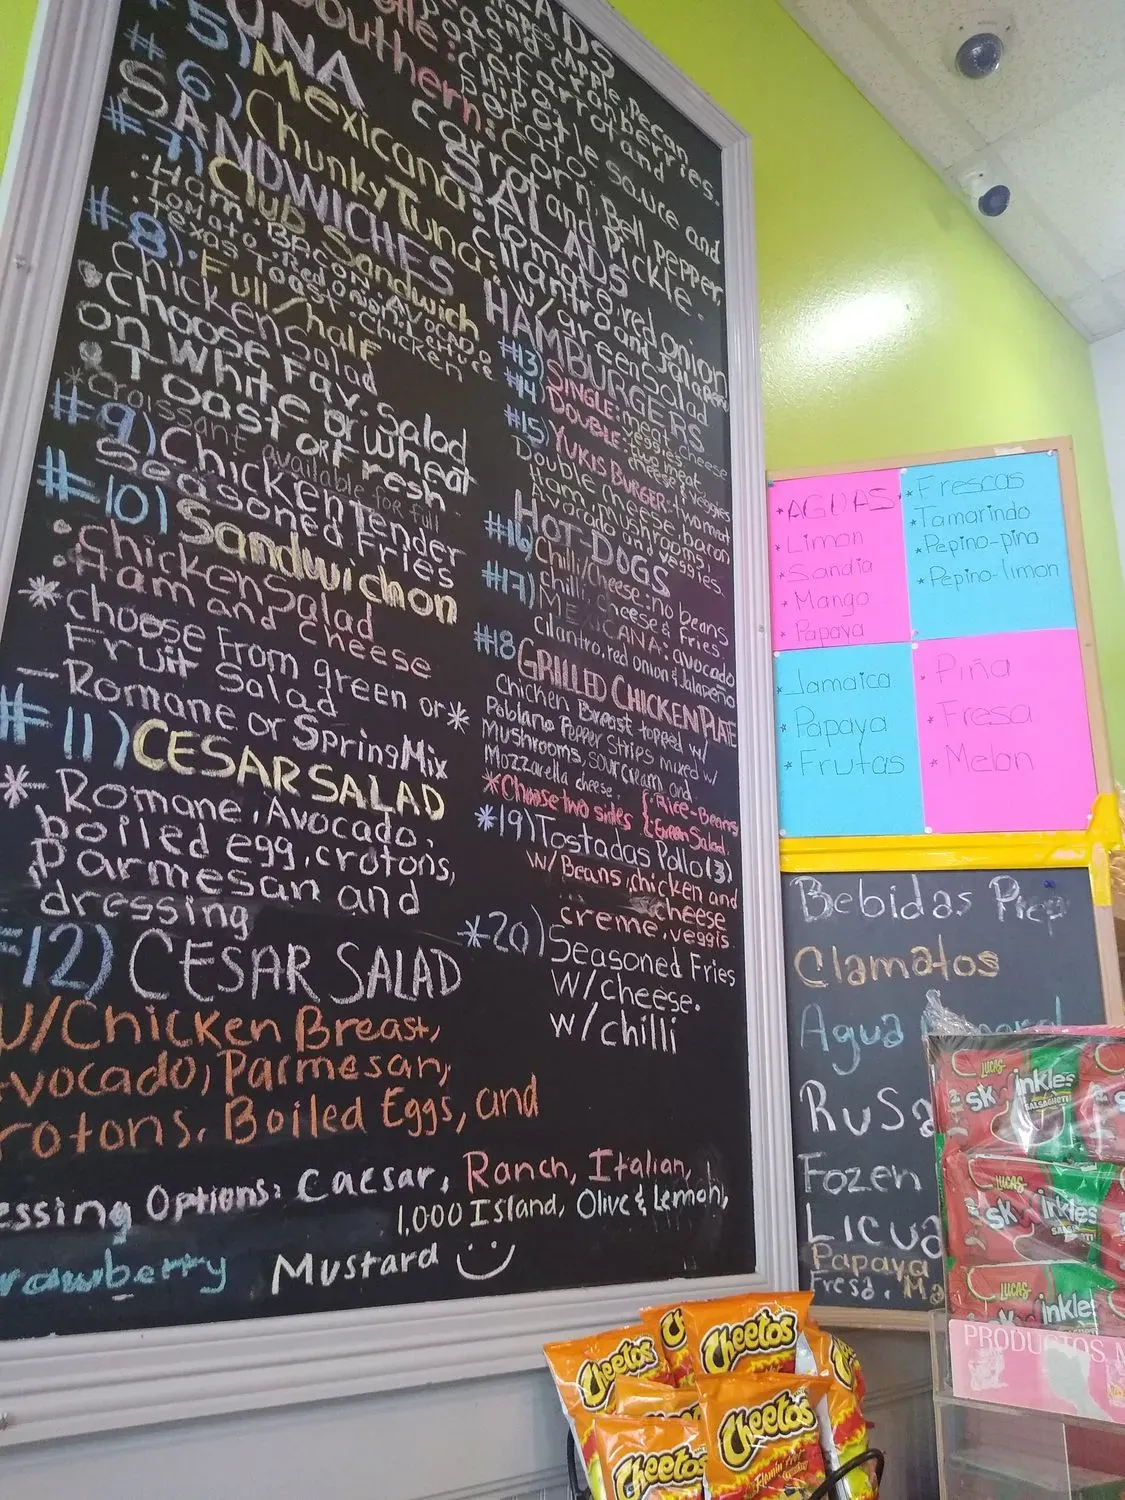 ADS
Apple, Pecan
and cranberries.
carrot and
chipotle sauce and
Southern: Corn, Bell pepper,
carrot and Pickle.
#5) Mexicana: tomate, red onion
cilantro and Jalapeño
#6) Chunky Tuna: w/green salad
TUNA SALADS
SANDWICHES
#7) Club Sandwich
• Ham. BACON. AVOCADO
• Tomato. Red Onion. Lettuce
• Texas Toast. Chicken
#8) Full/half
Chicken Salad
• Choose Fav. Salad
on White or wheat
• Toast or Fresh
*Croissant available for full
#9) Chicken Tender
Seasoned Fries
#10) Sandwichon
• Chicken Salad
• Ham and cheese
* choose From green or *
Fruit Salad
- Romane or Spring Mix
#11) CESAR SALAD
* - Romane, Avocado,
boiled egg, crotons,
Parmesan and
dressing
#12) CESAR SALAD
w/Chicken Breast,
Avocado, Parmesan,
crotons, Boiled Eggs, and
essing Options: Caesar, Ranch, Italian,
1,000 Island, Olive & Lemon,
rawberry Mustard
HAMBURGERS
#13) SINGLE: meat, cheese
veggies
#14) DOUBLE: two meat
cheese & veggies
#15) YUKIS BURGER: two meat
Double cheese, bacon
Ham, mushrooms,
Avocado and veggies.
HOT-DOGS
#16) Chilli/Cheese: no beans
chilli, cheese & Fries
#17) MEXICANA: avocado
cilantro, red onion & Jalapeño
#18 GRILLED CHICKEN PLATE
Chicken Breast topped w/
Poblano Pepper Strips mixed w/
Mushrooms, sour cream and
Mozzarella cheese.
*Choose two sides { •Rice-Beans
•Green Salad.
*19) Tostadas Pollo (3)
w/Beans, chicken and
cheese
creme, veggis
*20) Seasoned Fries
w/cheese.
w/chilli
* AGUAS *
* Limon
* Sandia
* Mango
* Papaya
* Frescas
* Tamarindo
* Pepino-piña
* Pepino-limon
* Jamaica
* Papaya
* Frutas
* Piña
* Fresa
* Melon
Bebidas Prep
Clamatos
Agua
RuSa
Fozen
Licua
Papaya
Fresa. Ma
LUCAS
sk inkles
SALSAGHETI
LUCAS
sk inkles
LUCAS
inkles
PRODUCTOS M
Cheetos
Cheetos
Cheetos
Flamin' Hot
Cheetos